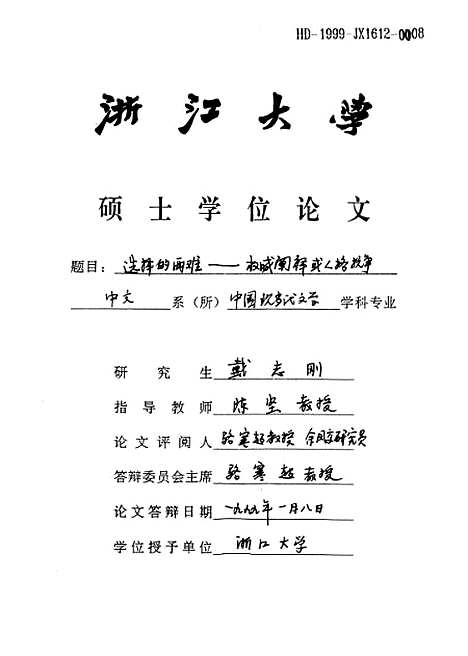 HD-1999-JX1612-0008
浙江大学
硕士学位论文
题目：选择的两难——权威阐释或人格抗争
中文 系（所）中国现当代文学 学科专业
研究生 戴志刚
指导教师 陈坚教授
论文评阅人 骆寒超教授 研究员
答辩委员会主席 骆寒超教授
论文答辩日期 一九九九年一月八日
学位授予单位 浙江大学